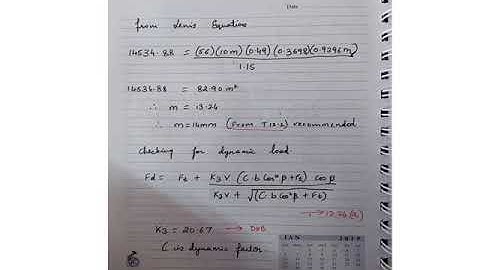 Date
from Lewis Equation
14534.88 = (56)(10m)(0.49)(0.3698)(0.9296m)
1.15
14534.88 = 82.90 m²
∴ m = 13.24
∴ m = 14mm (From T 12.2) recommended
checking for dynamic load
Fd = Ft + K3 V (C b cos²β + Ft) cos β
K3 V + √(C b cos²β + Ft)
→ 12.26 (a)
K3 = 20.67 → DDB
C is dynamic factor
JAN 2019